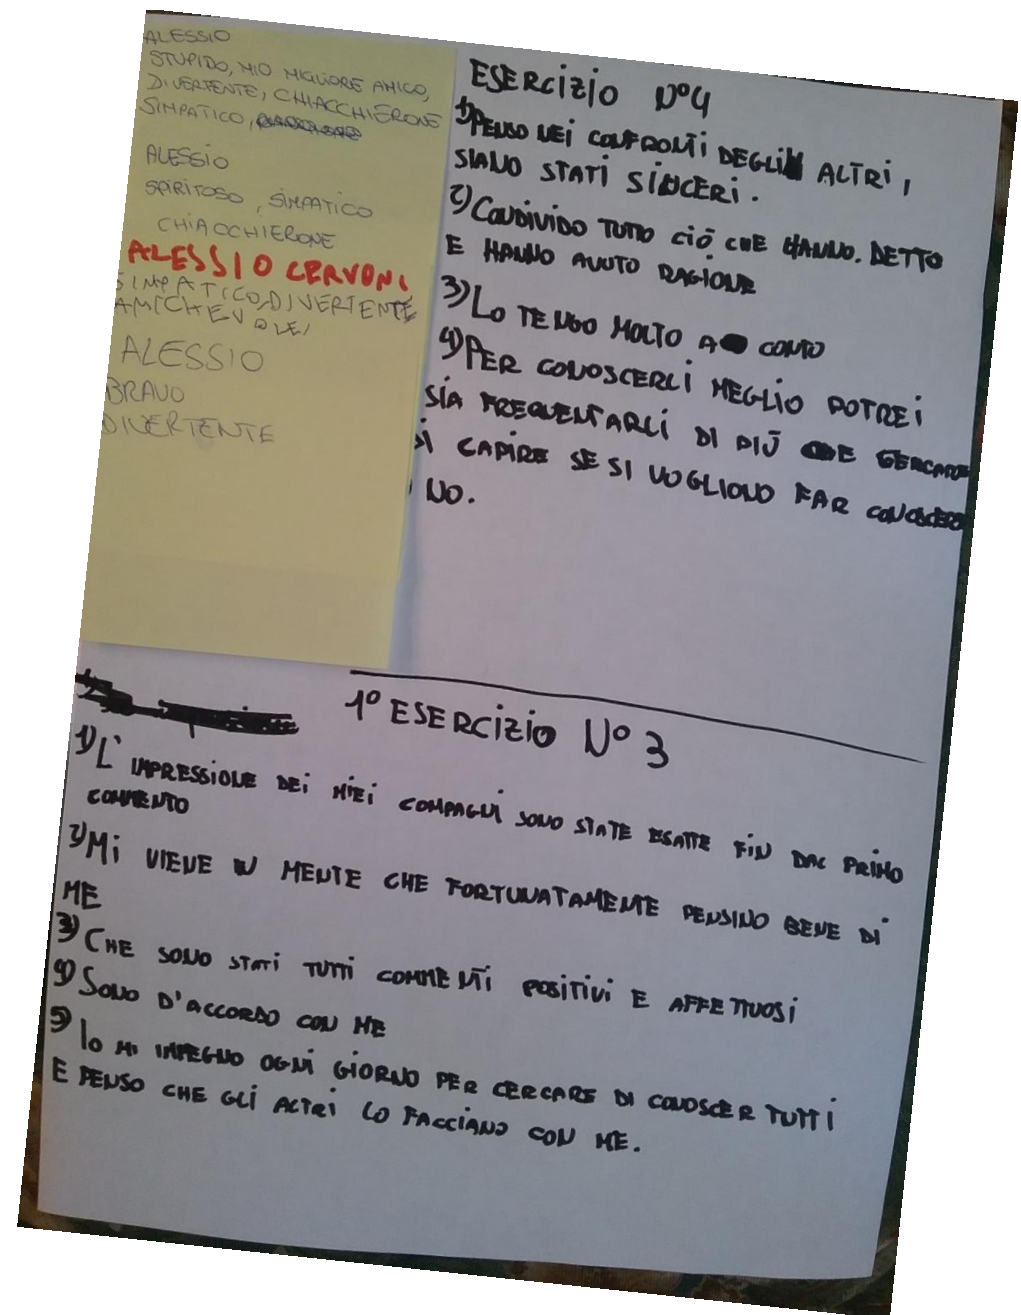 ALESSIO
STUPIDO, MIO MIGLIORE AMICO,
DIVERTENTE, CHIACCHIERONE
SIMPATICO,
ALESSIO
SPIRITOSO, SIMPATICO
CHIACCHIERONE
ALESSIO CERVONI
SIMPATICO, DIVERTENTE
AMICHEVOLE,
ALESSIO
BRAVO
DIVERTENTE
ESERCIZIO N°4
1) PENSO NEI CONFRONTI DEGLI ALTRI,
SIANO STATI SINCERI.
2) CONDIVIDO TUTTO CIÒ CHE HANNO. DETTO
E HANNO AVUTO RAGIONE
3) LO TENGO MOLTO A CONTO
4) PER CONOSCERLI MEGLIO POTREI
SIA FREQUENTARLI DI PIÙ E CERCARE
DI CAPIRE SE SI VOGLIONO FAR CONOSCERE
NO.
1° ESERCIZIO N° 3
1) L'IMPRESSIONE DEI MIEI COMPAGNI SONO STATE ESATTE FIN DAL PRIMO
COMMENTO
2) MI VIENE IN MENTE CHE FORTUNATAMENTE PENSINO BENE DI
ME
3) CHE SONO STATI TUTTI COMMENTI POSITIVI E AFFETTUOSI
4) SONO D'ACCORDO CON ME
5) IO MI IMPEGNO OGNI GIORNO PER CERCARE DI CONOSCER TUTTI
E PENSO CHE GLI ALTRI LO FACCIANO CON ME.